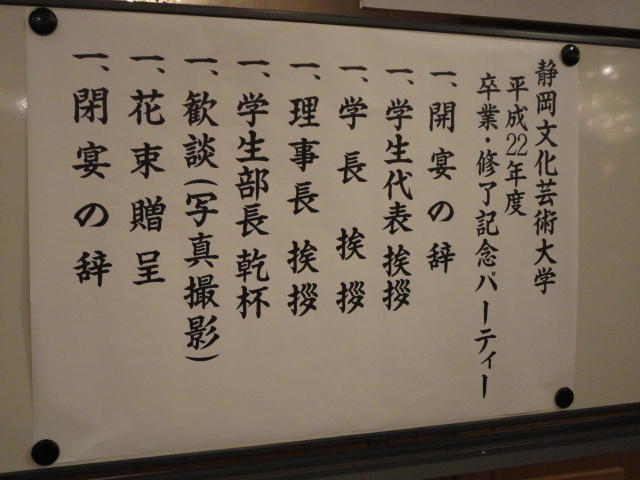 静岡文化芸術大学
平成22年度
卒業・修了記念パーティー
一、開宴の辞
一、学生代表挨拶
一、学長挨拶
一、理事長挨拶
一、学生部長乾杯
一、歓談(写真撮影)
一、花束贈呈
一、閉宴の辞